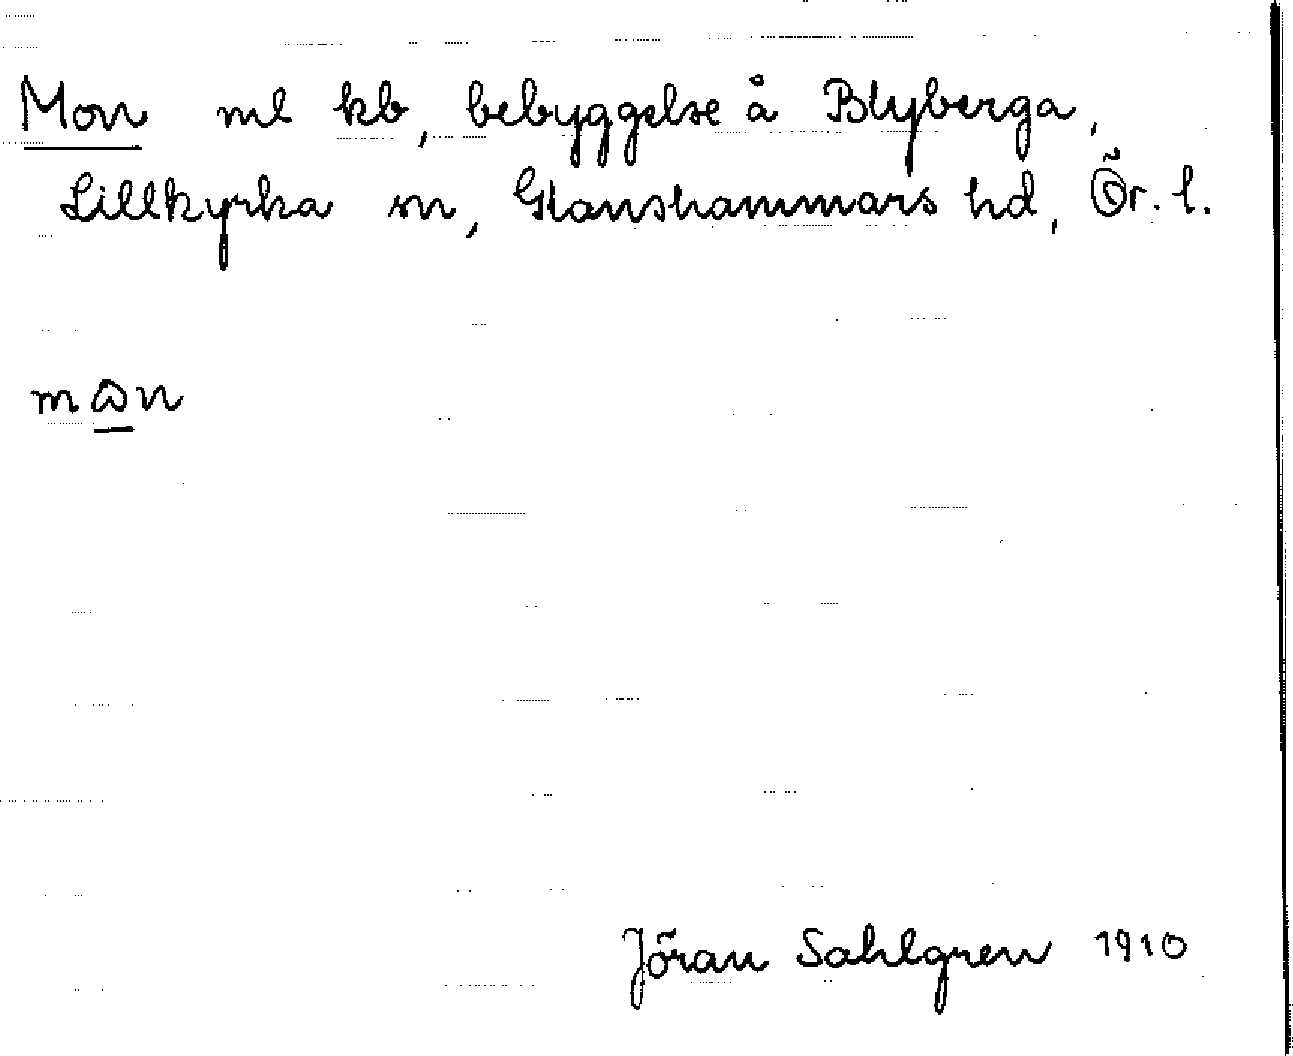 Mon ml kb, bebyggelse å Blyberga,
Lillkyrka sn, Glanshammars hd, Ör. l.
mꞷn
Jöran Sahlgren 1910